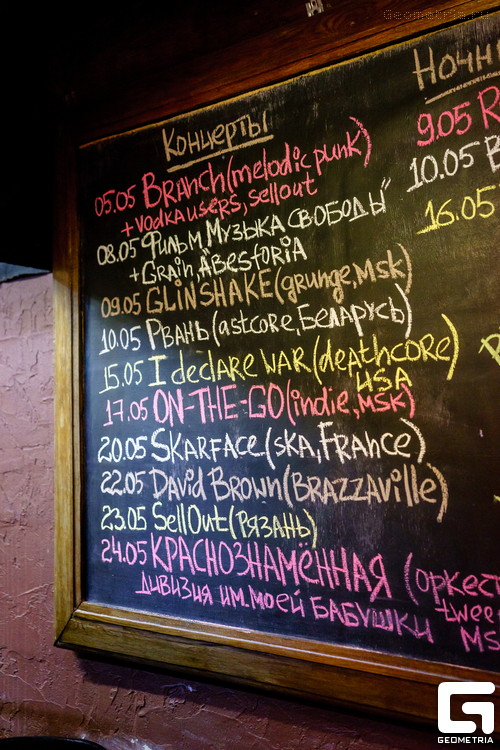 Geometria.ru
Концерты
05.05 Branch (melodic punk)
+ Vodka users, sellout
08.05 Фильм „Музыка свободы"
+ Grain, Abesforia
09.05 GLINSHAKE (grunge, Msk)
10.05 Рвань (astcore, Беларусь)
15.05 I declare WAR (deathcore)
USA
17.05 ON-THE-GO (indie, MSK)
20.05 Skarface (ska, France)
22.05 David Brown (Brazzaville)
23.05 SellOut (Рязань)
24.05 КРАСНОЗНАМЁННАЯ (оркест
ДИВИЗИЯ ИМ. МОЕЙ БАБУШКИ twee
MS
Ночн
9.05 R
10.05 B
16.05
GEOMETRIA